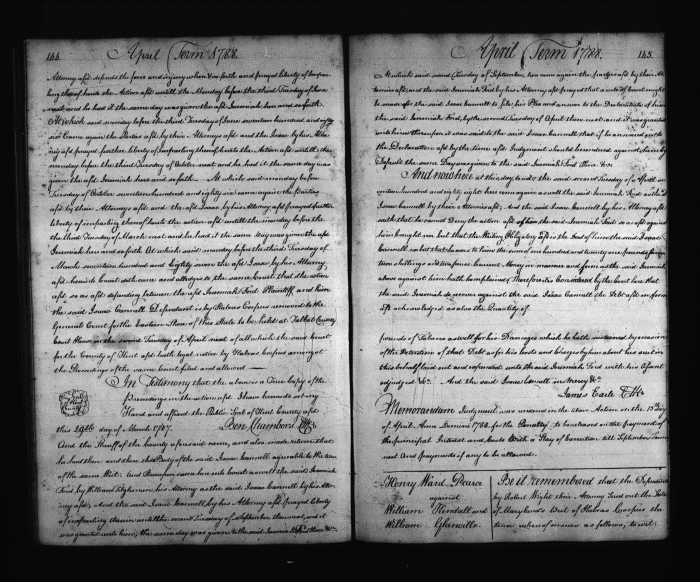 144. April Term 1788.
Attorney afsd. defends the force and injury when &c. so forth and prayed liberty of Impar-
ling thereof unto the Action afsd. untill the Monday before the third Tuesday of June
next and he had it the same day was given the afsd. Jeremiah here and so forth.
At which said monday before the third Tuesday of June seventeen hundred and
six Came again the Parties afsd. by their Attorneys afsd. and the Isaac by his Attor-
ney afsd. prayed further liberty of Imparling thereof unto the Action afsd. untill the
monday before the third Tuesday of October next and he had it the same day was
given the afsd. Jeremiah here and so forth. At which said monday before
Tuesday of October seventeen hundred and eighty six came again the parties
afsd. by their Attorneys afsd. and the afsd. Isaac by his Attorney afsd. prayed further
liberty of imparling thereof unto the action afsd. untill the monday before the
the third Tuesday of March next and he had it the same day was given the afsd.
Jeremiah here and so forth At which said monday before the third Tuesday of
March seventeen hundred and Eighty seven the afsd. Isaac by his Attorney
afsd. comes into Court and alledges to the same Court that the action
afsd. so as afsd. depending between the afsd. Jeremiah Ford Plaintiff and him
the said Isaac Cannell Defendant is by Habeas Corpus removed to the
General Court for the Eastern Shore of this State to be held at Talbot County
Court House on the second Tuesday of April next of all which the said Court
for the County of Kent afsd. hath legal notice by Habeas Corpus amongst
the Proceedings of the same Court filed and allowed
In Testimony that the above is a True Copy of the
proceedings in the action afsd. I have hereunto set my
Hand and affixed the Public Seal of Kent County afsd.
this 29th day of March 1787. Ben Chambers Clk
And the Sheriff of the County aforesaid came, and also made return that
he had then and there the Body of the said Isaac Cannell agreeable to the tenor
of the same Writ: And thereupon came here into Court as well the said Jeremiah
Ford by William his Attorney as the said Isaac Cannell by his Attor-
ney afsd; And the said Isaac Cannell, by his Attorney afsd. prayed liberty
of imparling therein until the second Tuesday of September then next, and it
was granted unto him; the same day was given to the said Jeremiah Ford then &c.
April Term 1788. 145.
At which said second Tuesday of September, came again the parties afsd. by their At-
tornies afsd; and the said Jeremiah Ford by his Attorney afsd. prayed that a rule of Court might
be made for the said Isaac Cannell to file his Plea and answer to the Declaration of him
the said Jeremiah Ford, by the second Tuesday of April then next: and it was granted
unto him thereupon it was said to the said Isaac Cannell that if he answered not to
the Declaration afsd. by the time afsd. Judgment should be rendered against him by
Default the same Day was given to the said Jeremiah Ford then &c.
And now here at this day, to wit the said second Tuesday of April se-
venteen hundred and eighty eight here came again as well the said Jeremiah Ford as the sd.
Isaac Cannell by their Attornies afsd, And the said Isaac Cannell by his Attorney afsd
saith that he cannot Deny the action afsd. of him the said Jeremiah Ford so as afsd. against
him brought nor but that the Writing Obligatory afsd. is the Deed of him the said Isaac
Cannell nor but that he owes to him the sum of one hundred and twenty one pounds fourteen
two shillings and Ten pence current Money in manner and form as the said Jeremiah
above against him hath complained Therefore it is Considered by the Court here that
the said Jeremiah do recover against the said Isaac Cannell the Debt afsd. in form
afsd. acknowledged as also the Quantity of
pounds of Tobacco as well for his Damages which he hath sustained by reason
of the Detention of that Debt as for his Costs and Charges by him about his suit in
this behalf laid out and expended unto the said Jeremiah Ford with his assent
adjudged &c. And the said Isaac Cannell in Mercy &c.
James Earle Clk
Memorandum Judgment was entered in the above Action on the 15th Day
of April Anno Domini 1788. for the Penalty to be released on the payment of
the principal Interest and Costs With a Stay of Execution till September Term
next. And payments if any to be allowed.
Henry Ward Pearce
against
William Hendall and
William Glanville
Be it remembered that the Defendants
by Robert Wright their Attorney sued out the State
of Maryland's Writ of Habeas Corpus the
tenor whereof ensues as follows, to wit